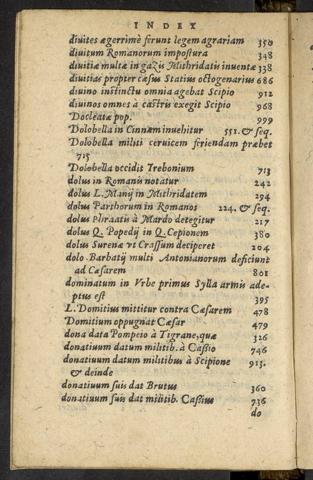 INDEX
diuites ægerrimè ferunt legem agrariam 350
diuitum Romanorum impostura 348
diuitiæ multæ in gazis Mithridatis inuentæ 338
diuitias propter cæsus Statius octogenarius 686
diuino instinctu omnia agebat Scipio 912
diuinos omnes à castris exegit Scipio 968
Docleatæ pop. 999
Dolobella in Cinnam inuehitur 551. & seq.
Dolobella militi ceruicem feriendam præbet
715
Dolobella occidit Trebonium 713
dolus in Romanis notatur 242
dolus L. Manij in Mithridatem 294
dolus Parthorum in Romanos 224. & seq.
dolus Phraatis à Mardo detegitur 217
dolus Q. Popedij in Q. Cepionem 380
dolus Surenæ vt Crassum deciperet 204
dolo Barbatij multi Antonianorum deficiunt
ad Cæsarem 801
dominatum in Vrbe primus Sylla armis ade-
ptus est 395
L. Domitius mittitur contra Cæsarem 478
Domitium oppugnat Cæsar 479
dona data Pompeio à Tigrane, quæ 326
donatiuum datum militib. à Cassio 746
donatiuum datum militibus à Scipione 913.
& deinde
donatiuum suis dat Brutus 360
donatiuum suis dat militib. Cassius 736
do